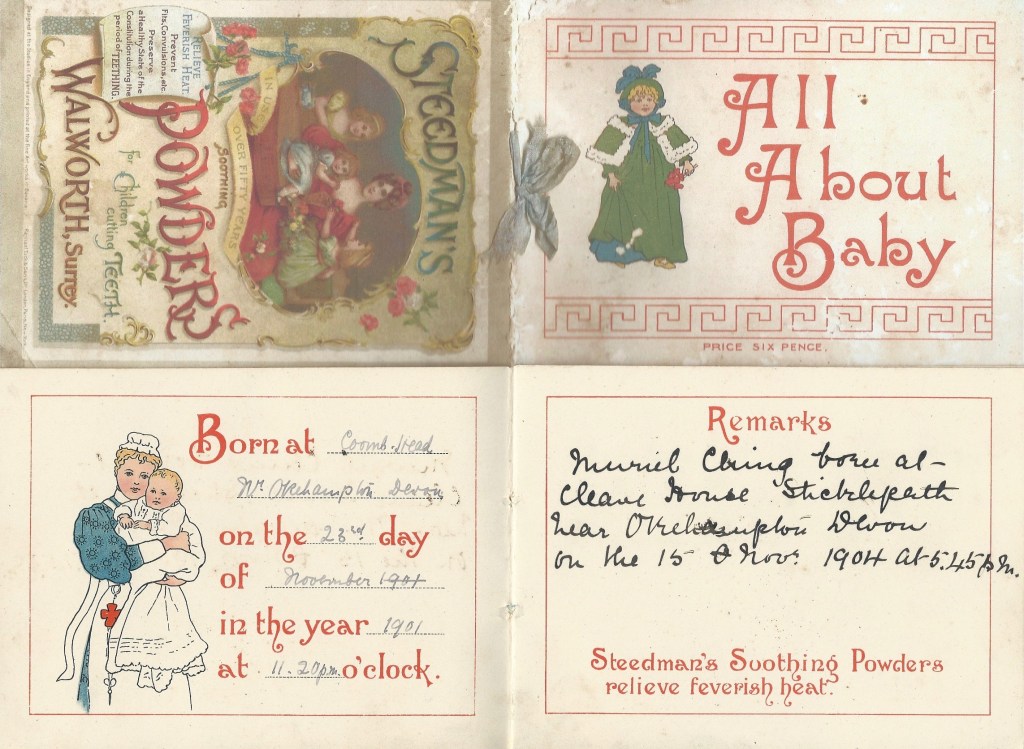 STEEDMAN'S
IN USE OVER FIFTY YEARS
SOOTHING
POWDERS
for Children cutting TEETH.
WALWORTH, Surrey.
RELIEVE
FEVERISH HEAT.
Prevent
Fits, Convulsions, etc.
Preserve
a Healthy State of the
Constitution during the
period of TEETHING.
All
About
Baby
PRICE SIX PENCE.
Born at Coomb Head
Nr Okehampton Devon
on the 23rd day
of November 1901
in the year 1901
at 11.20 pm o'clock.
Remarks
Muriel Ching born at
Cleave House Sticklepath
Near Okehampton Devon
on the 15 Novr 1904 at 5.45 p.m.
Steedman's Soothing Powders
relieve feverish heat.